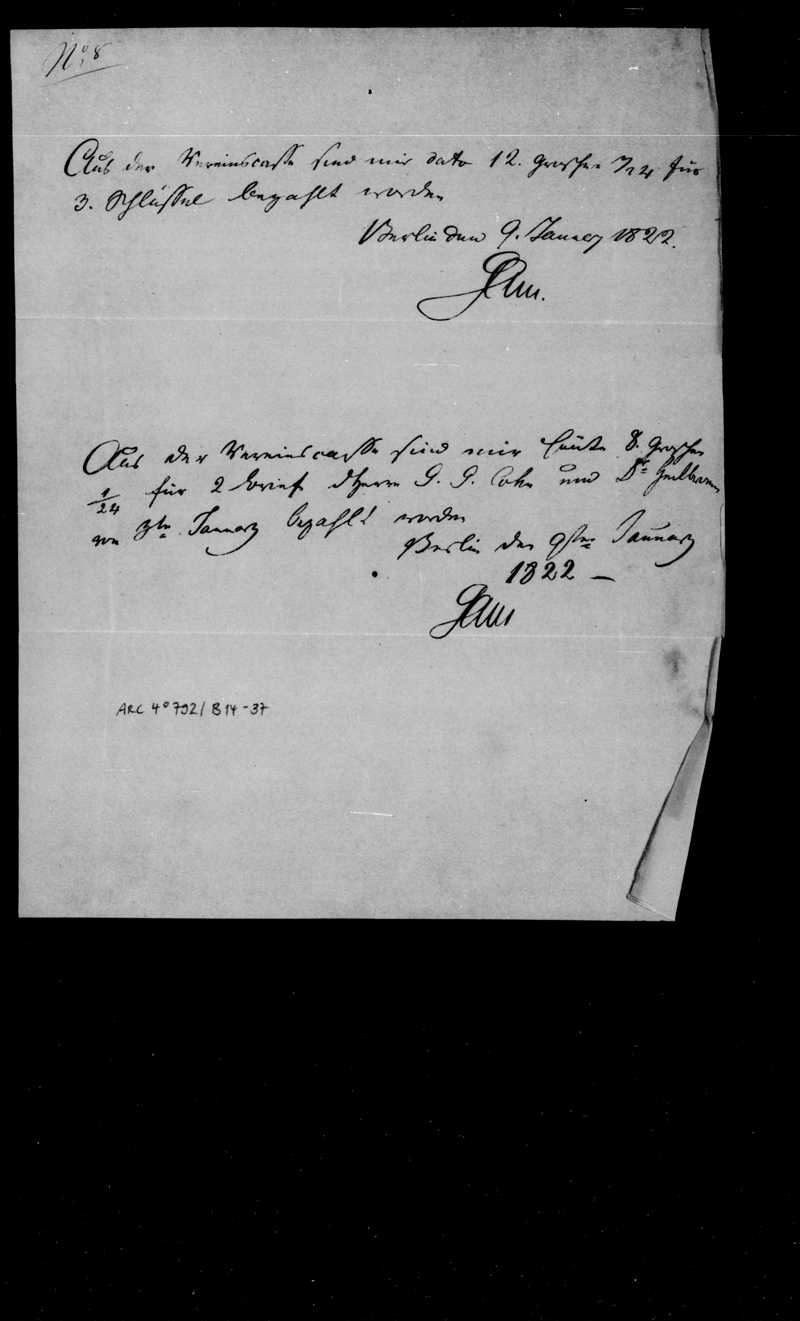 No. 8
Aus der Vereinscasse sind mir dato 12. Groschen 1/24 für
3. Schlüssel bezahlt worden
Berlin den 9. January 1822.
Aus der Vereinscasse sind mir heute 8. Groschen
1/24 für 2 Brief d Herrn Cohn und Dr
January bezahlt worden
Berlin den 9ten January
1822 —
ARC 4° 792/ B14-37